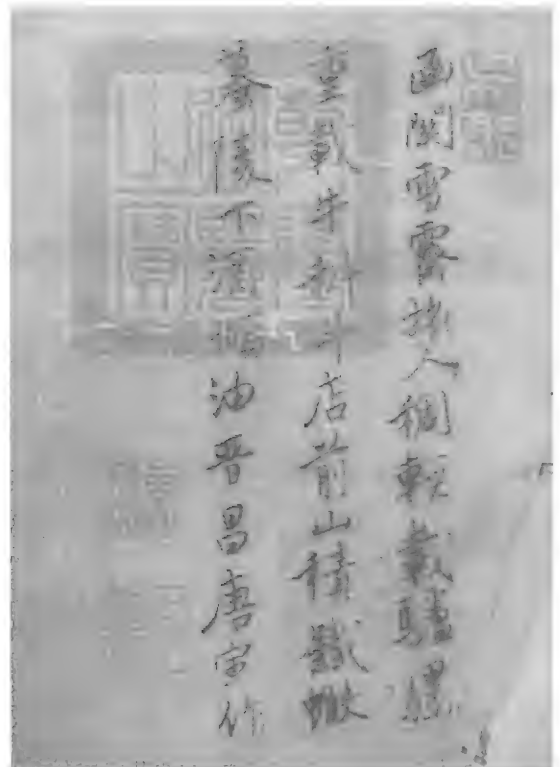 函關雪霽旅人稠輕載驢騾
重載牛科斗店前山積鐵蝦
蟇陵下酒傾油晉昌唐寅作